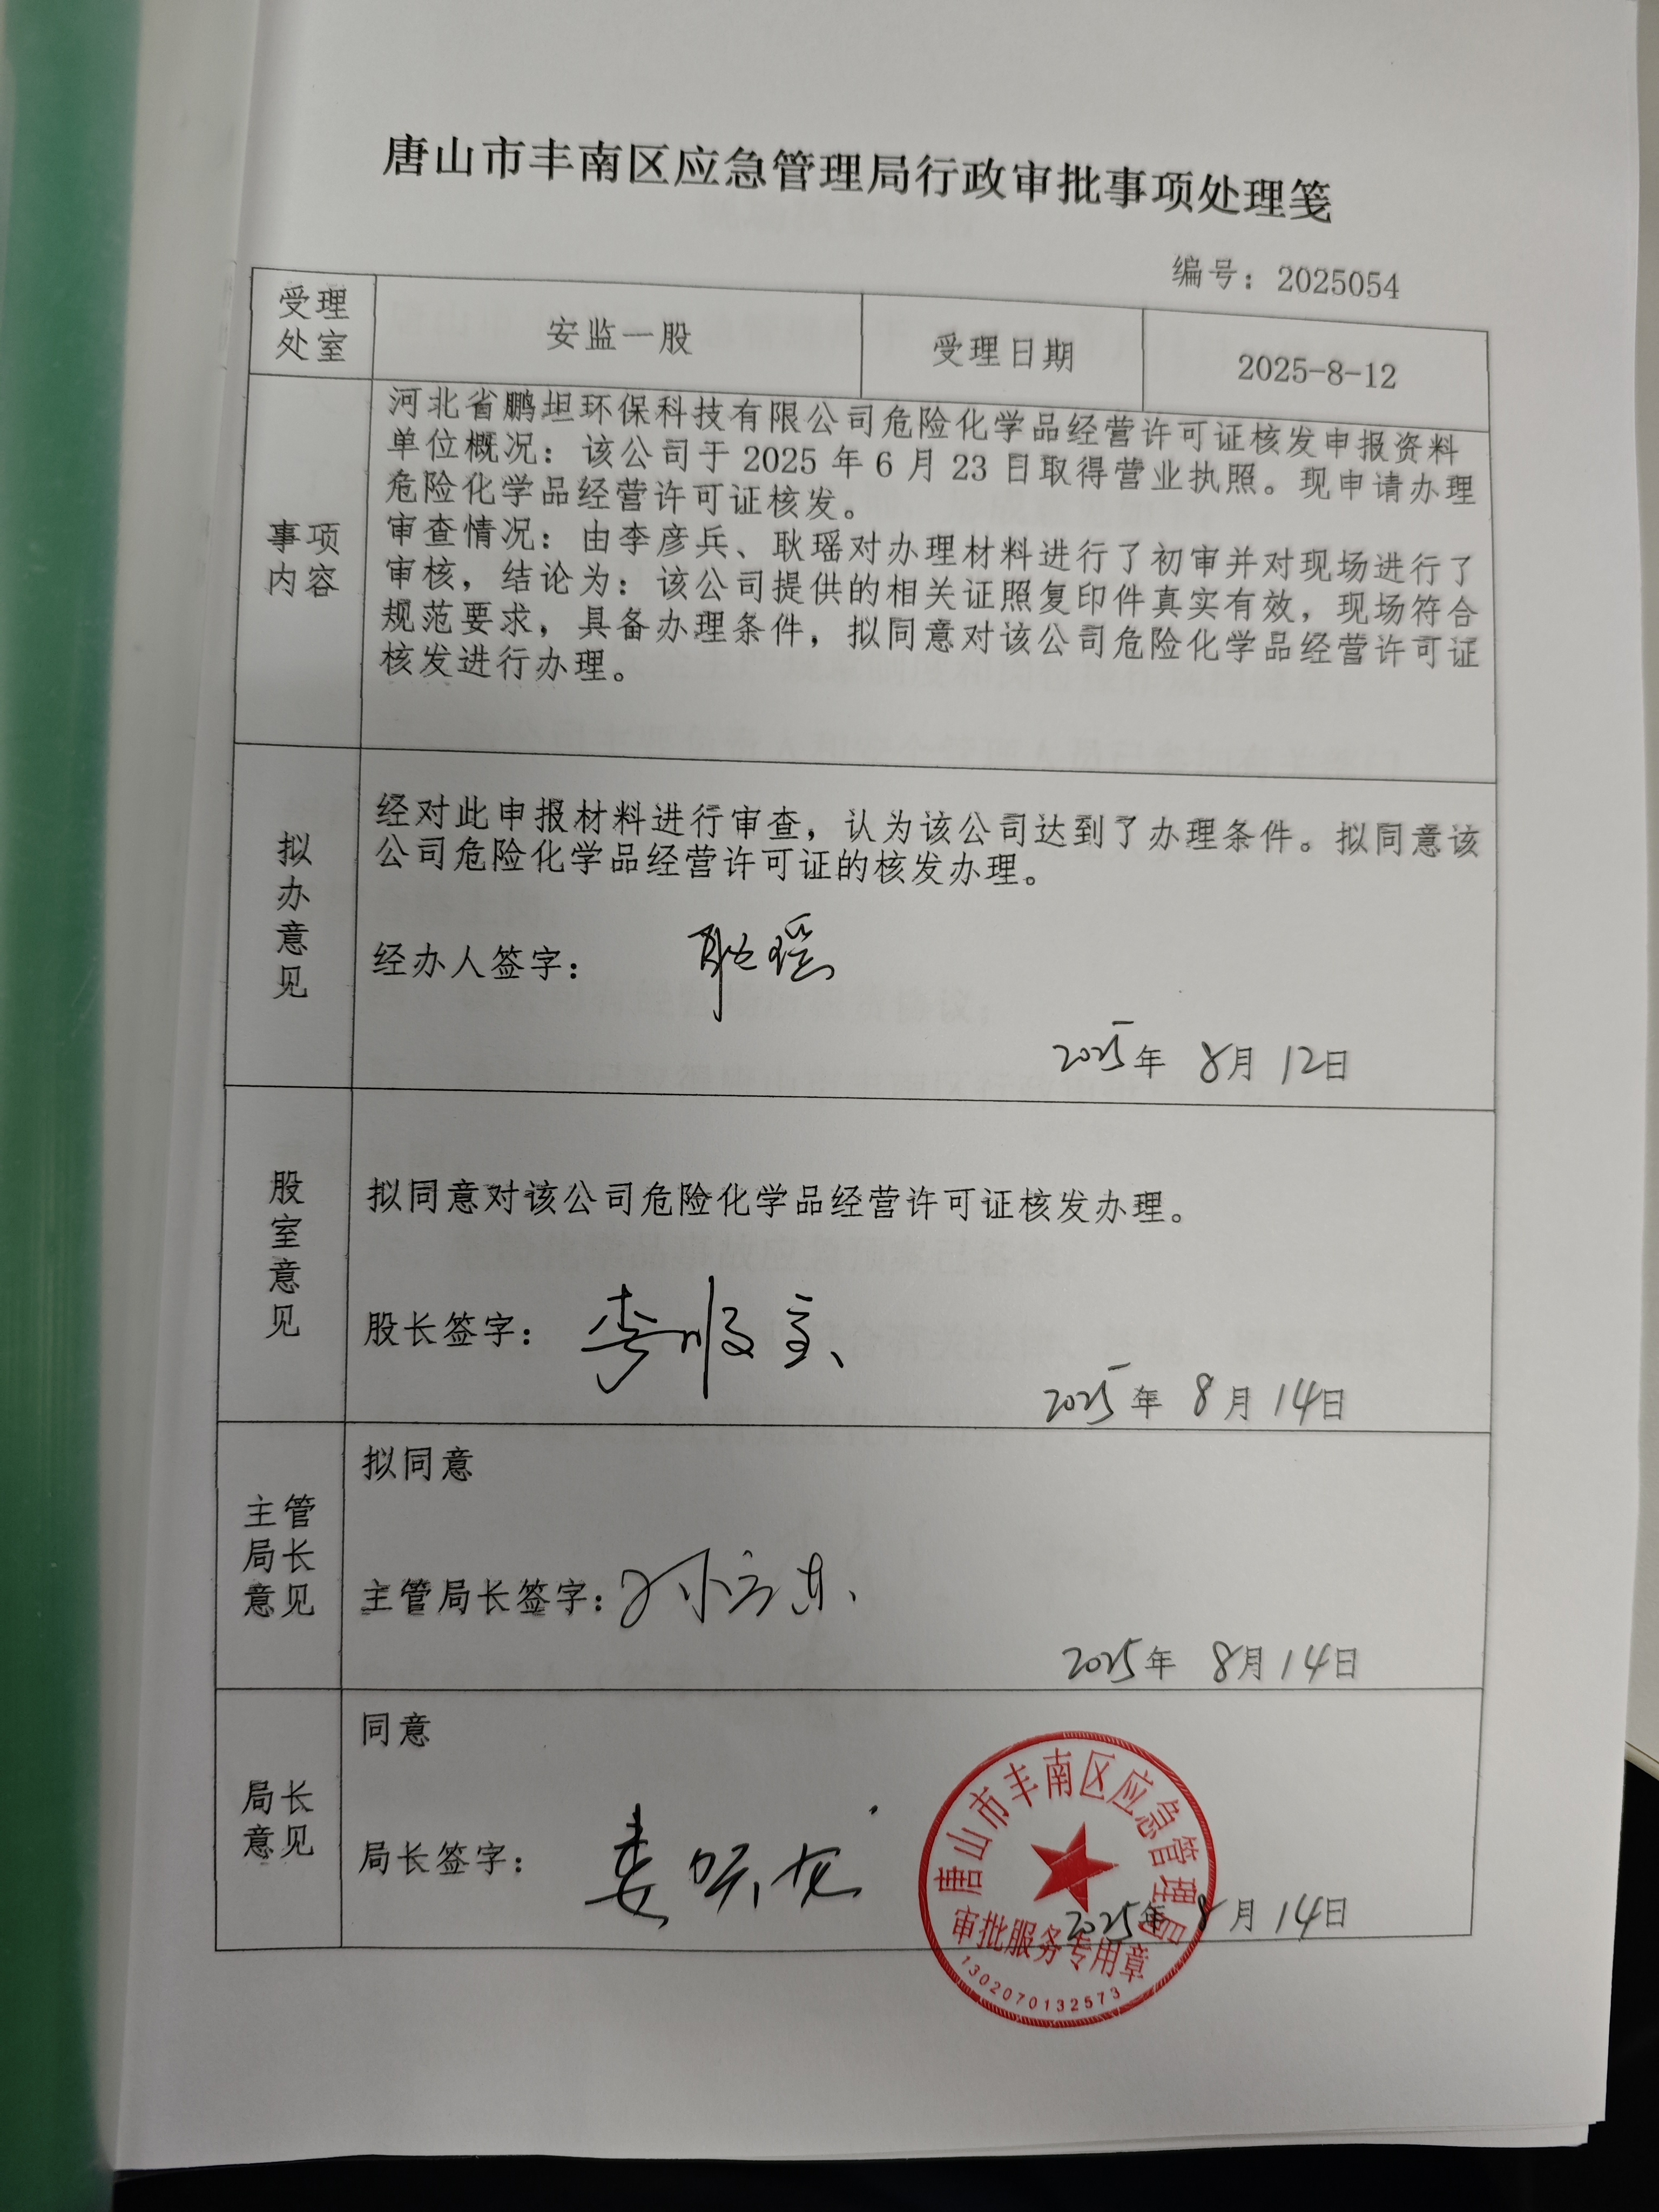 唐山市丰南区应急管理局行政审批事项处理笺
编号：2025054
受理
处室
安监一股
受理日期
2025-8-12
事项
内容
河北省鹏坦环保科技有限公司危险化学品经营许可证核发申报资料
单位概况：该公司于 2025 年 6 月 23 日取得营业执照。现申请办理
危险化学品经营许可证核发。
审查情况：由李彦兵、耿瑶对办理材料进行了初审并对现场进行了
审核，结论为：该公司提供的相关证照复印件真实有效，现场符合
规范要求，具备办理条件，拟同意对该公司危险化学品经营许可证
核发进行办理。
拟
办
意
见
经对此申报材料进行审查，认为该公司达到了办理条件。拟同意该
公司危险化学品经营许可证的核发办理。
经办人签字： 耿瑶
2025年 8月 12日
股
室
意
见
拟同意对该公司危险化学品经营许可证核发办理。
股长签字：
2025年 8月 14日
主管
局长
意见
拟同意
主管局长签字：
2025年 8月 14日
局长
意见
同意
局长签字：
2025年 8月 14日
唐山市丰南区应急管理局
审批服务专用章
1302070132573